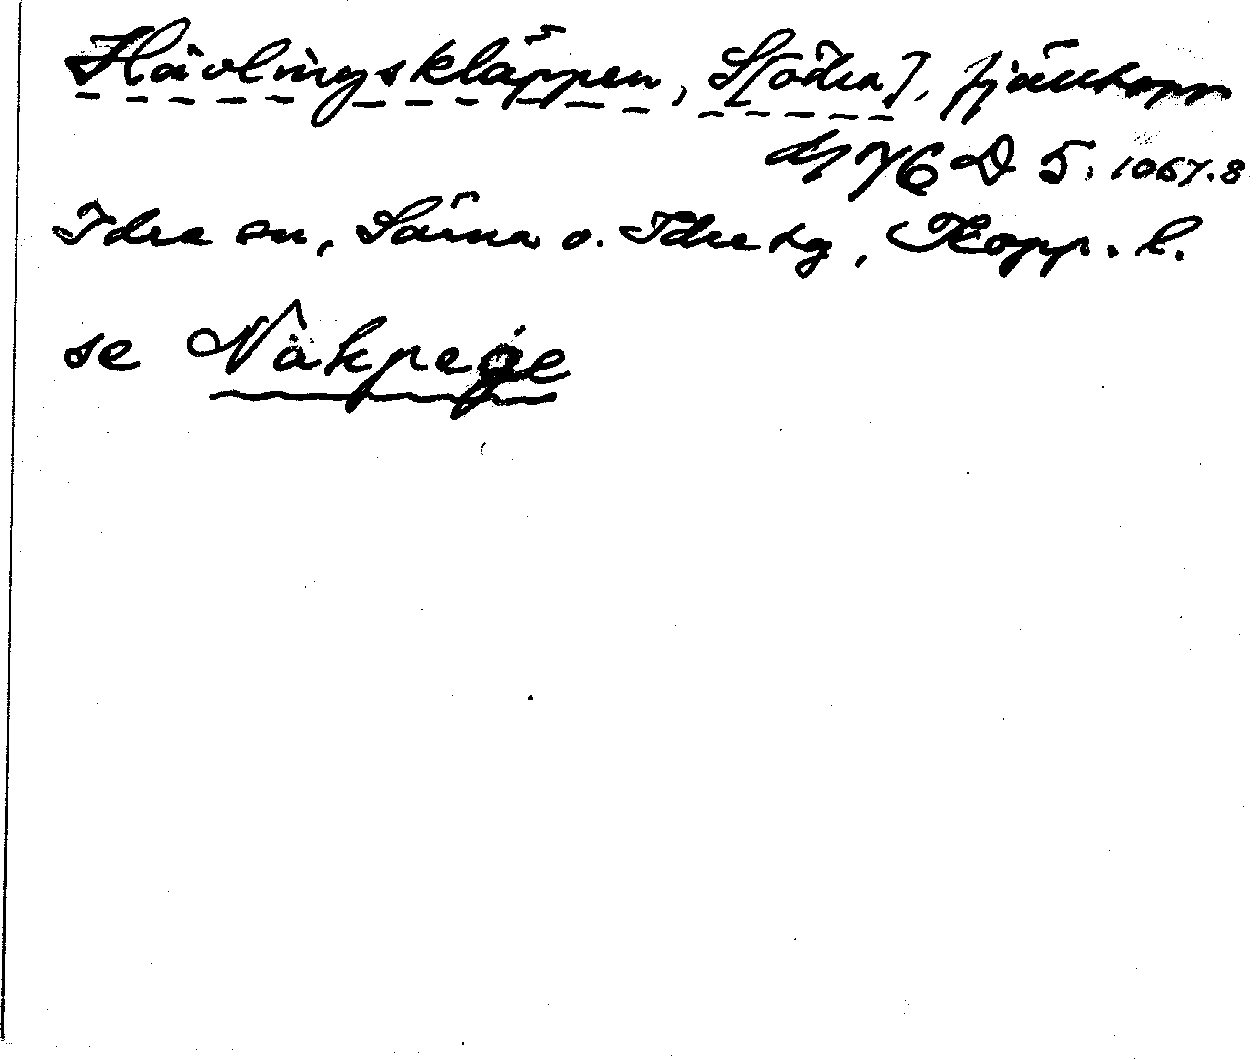 Hävlingskläppen, S[ödra], fjälltopp
dy 76 D 5, 1067.8
Idre sn, Särna o. Idre tg, Kopp. l.
se Nakpege